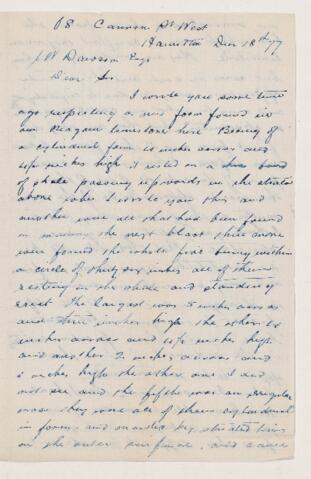 68 Cannon St West
Hamilton Dec 18th /77
J W Dawson Esq
Dear Sir
I wrote you some time
ago respecting a new form found in
our Niagara limestone here Being of
a cylindrical form inches across and
inches high it rested on a band
of shale passing upwards in the strata
above when I wrote you this and
another were all that had been found
in making the next blast three more
were found the whole five being within
a circle of thirty six inches all of them
resting in the shale and standing
erect The largest was 5 inches across
and inches high the other
inches across and inches high
and another 2 inches across and
inches high the other one I did
not see and the fifth was an irregular
mass they were all of them cylindrical
in form and marked by striated lines
on the outer surface, and